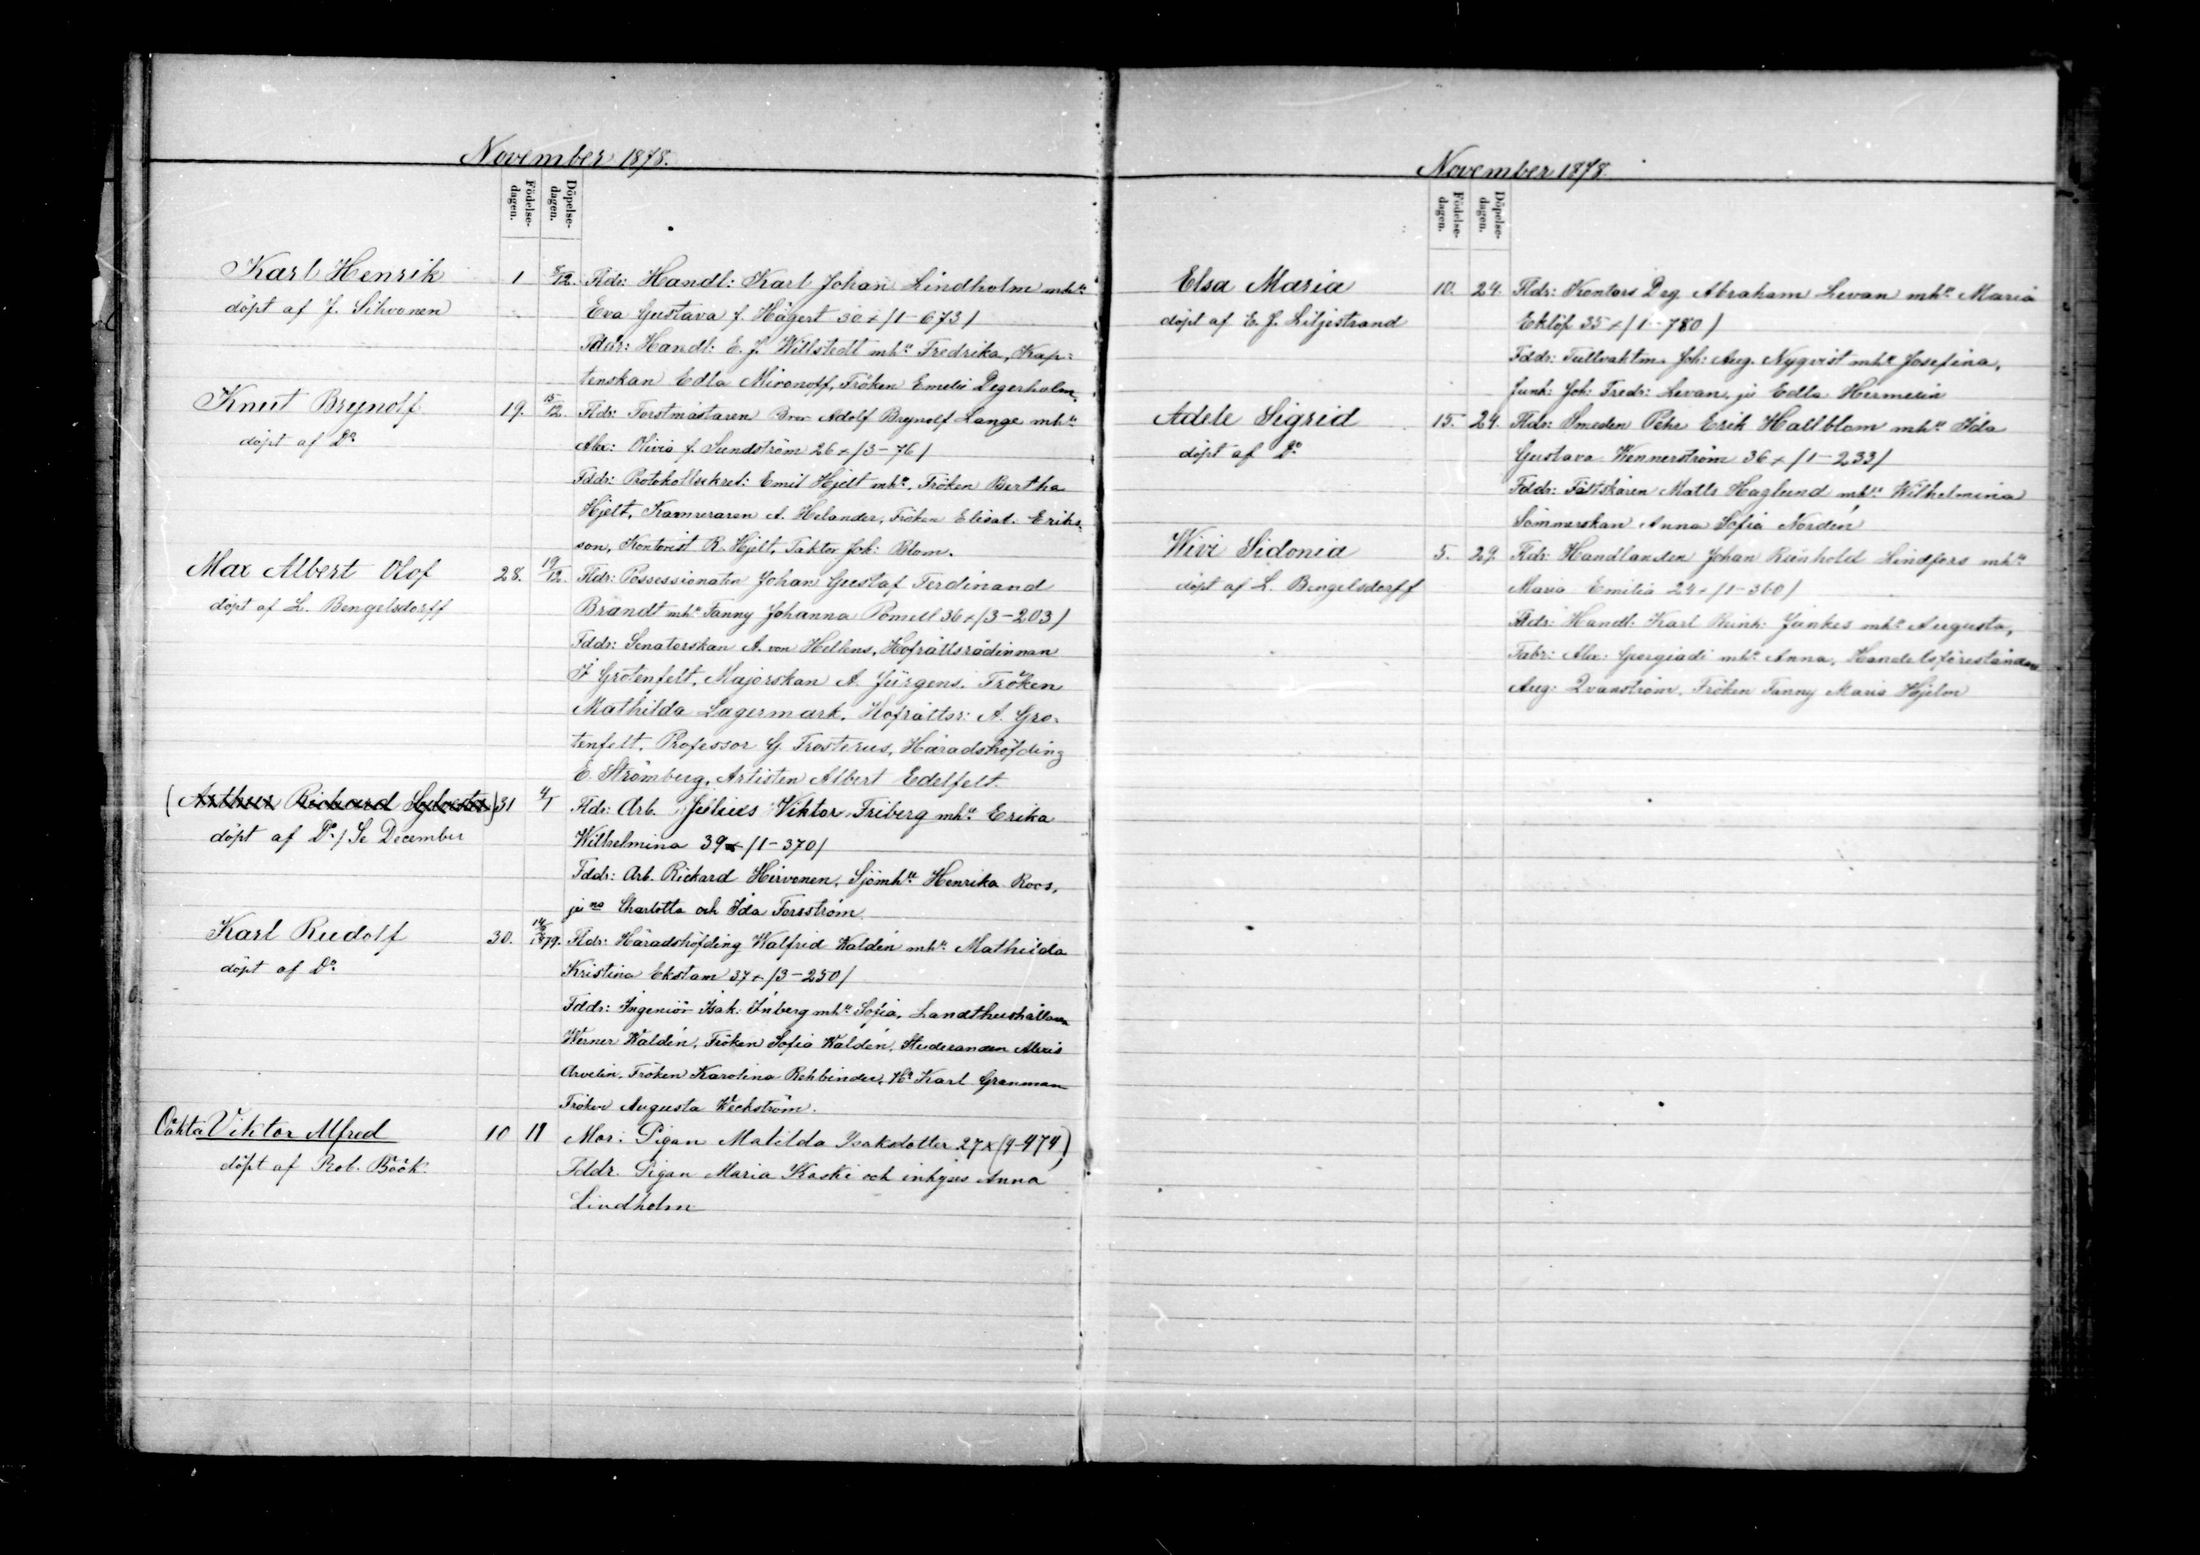 November 1878.
Födelse-
dagen.
Döpelse-
dagen.
Karl Henrik
döpt af J. Sihvonen
1
8/12.
Fldr: Handl: Karl Johan Lindholm mhu
Eva Gustava f. Hägert 30 + /1-673/
Fddr: Handl: E. J. Willstedt mhu Fredrika, Kap-
tenskan Edla Mironoff, Fröken Emelie Degerholm
Knut Brynolf
döpt af Do
19.
15/12.
Fldr: Forstmästaren Adolf Brynolf Lange mhu
Alex: Olivia f. Sundström 26 + /3-76/
Fddr: Protokollsekret: Emil Hjelt mhu, Fröken Bertha
Hjelt, Kamreraren A. Helander, Fröken Elisat. Eriks-
son, Kontorist R. Hjelt, Faktor Joh: Blom.
Max Albert Olof
döpt af L. Bengelsdorff
28.
19/12.
Fldr: Possessionaten Johan Gustaf Ferdinand
Brandt mhu Fanny Johanna Pomell 36 + /3-203/
Fddr: Senatorskan A. von Hellens, Hofrättsrådinnan
I Grotenfelt, Majorskan A. Jürgens, Fröken
Mathilda Lagermark, Hofrättsr: A. Gro-
tenfelt, Professor G. Frosterus, Häradshöfding
E. Strömberg, Artisten Albert Edelfelt.
(Arthur Rickard Sylvester)
döpt af Do / Se December
31
4/1
Fldr: Arb. Julius Viktor Friberg mhu Erika
Wilhelmina 39 + /1-370/
Fddr: Arb. Rickard Hirvonen, Sjömhu Henrika Roos,
pi no Charlotta och Ida Forsström
Karl Rudolf
döpt af Do
30.
1879.
Fldr: Häradshöfding Walfrid Waldén mhu Mathilda
Kristina Ekstam 37 + /3-250/
Fddr: Ingeniör Isak: Inberg mhu Sofia, Landthushållaren
Werner Waldén, Fröken Sofia Waldén, Studeranden Alexis
Arvelin, Fröken Karolina Rehbinder, Hr Karl Granman
Fröken Augusta Weckström.
Oäkta Viktor Alfred
döpt af Rob. Böök.
10
11
Mor: Pigan Matilda Isaksdotter 27 x (9-474)
Fddr. Pigan Maria Kaski och inhyses Anna
Lindholm
November 1878.
Födelse-
dagen.
Döpelse-
dagen.
Elsa Maria
döpt af E. J. Liljestrand
10.
24.
Fldr: Kontors Deg. Abraham Levan mhu Maria
Eklöf 35 + /1-780/
Fddr: Tullvaktm. Joh: Aug. Nyqvist mhu Josefina,
Junk: Joh: Fredr: Levan, pi Edla Hermelin
Adele Sigrid
döpt af Do
15.
24.
Fldr: Smeden Pehr Erik Hallblom mhu Ida
Gustava Wennerström 36 + /1-233/
Fddr: Fältskären Matts Haglund mhu Wilhelmina
Sömmerskan Anna Sofia Nordén
Wivi Sidonia
döpt af L. Bengelsdorff
5.
29.
Fldr: Handlanden Johan Reinhold Lindfors mhu
Maria Emilia 24 + /1-360/
Fddr: Handl: Karl Reinh: Jankes mhu Augusta,
Fabr: Alex: Georgiadi mhu Anna, Handelsföreståndare
Aug: Qvanström, Fröken Fanny Maria Hjelm